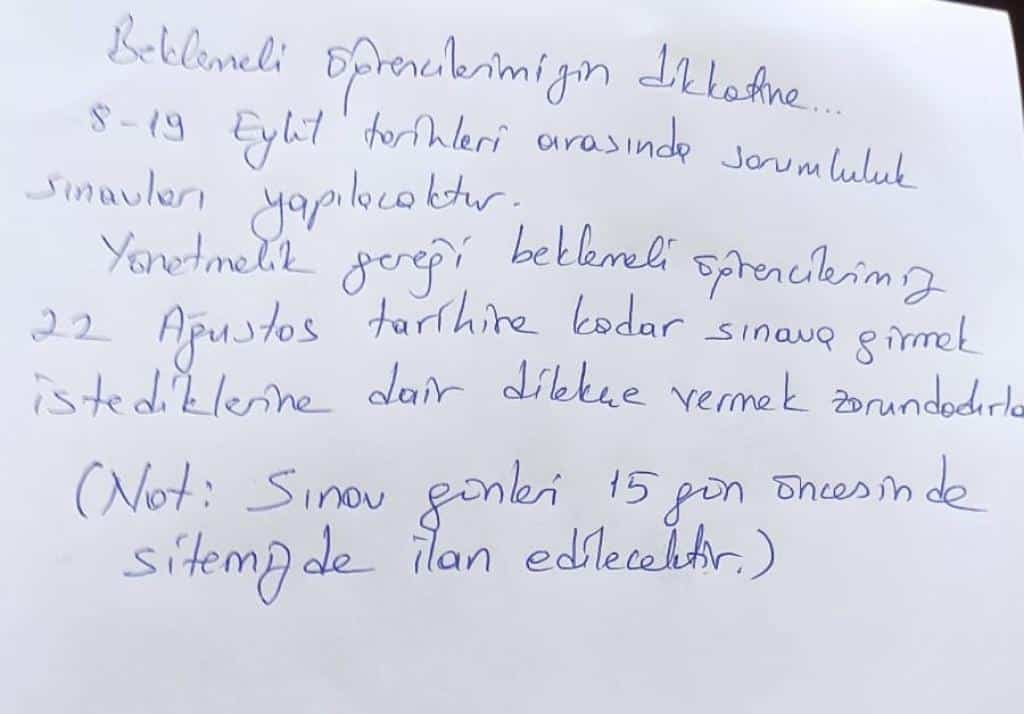 Beklemeli öğrencilerimizin dikkatine...
8-19 Eylül tarihleri arasında sorumluluk
sınavları yapılacaktır.
Yönetmelik gereği beklemeli öğrencilerimiz
22 Ağustos tarihine kadar sınava girmek
istediklerine dair dilekçe vermek zorundadırla
(Not: Sınav günleri 15 gün öncesinde
sitemizde ilan edilecektir.)